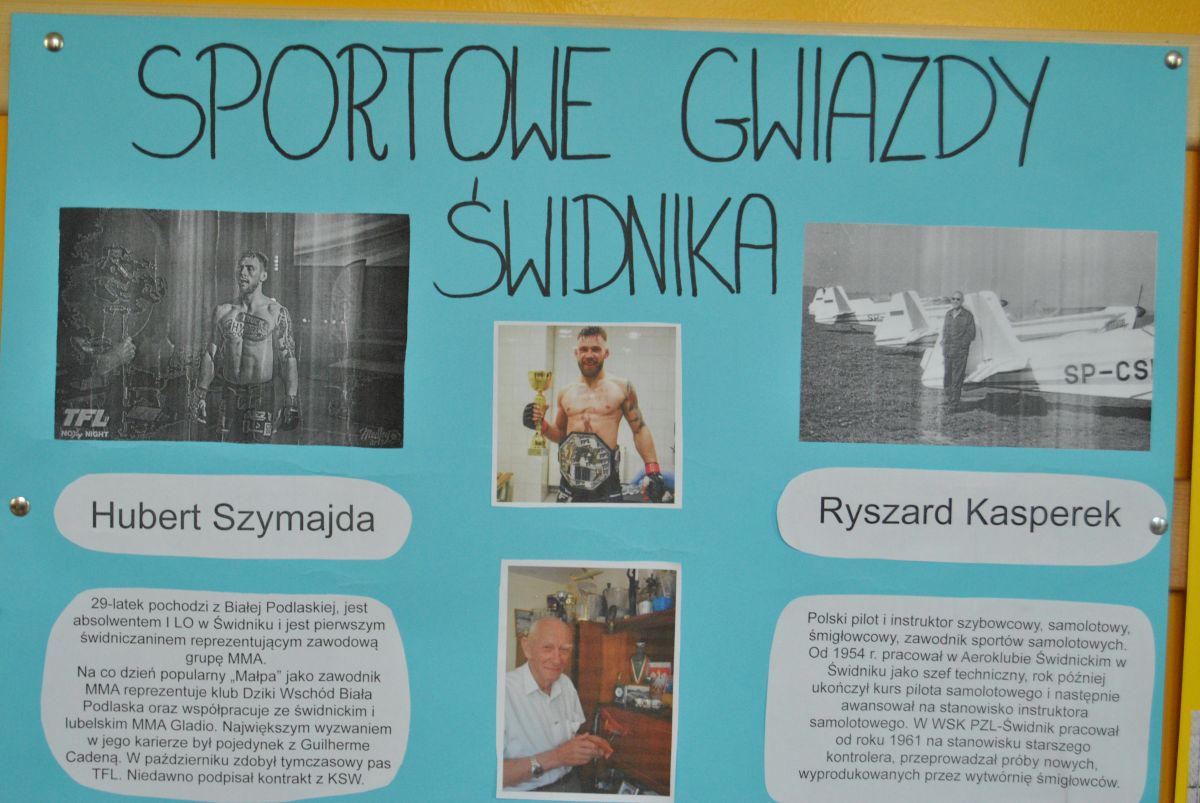 SPORTOWE GWIAZDY
ŚWIDNIKA
TFL
NIGHT
SP-CS
Hubert Szymajda
Ryszard Kasperek
29-latek pochodzi z Białej Podlaskiej, jest
absolwentem I LO w Świdniku i jest pierwszym
świdniczaninem reprezentującym zawodową
grupę MMA.
Na co dzień popularny „Małpa” jako zawodnik
MMA reprezentuje klub Dziki Wschód Biała
Podlaska oraz współpracuje ze świdnickim i
lubelskim MMA Gladio. Największym wyzwaniem
w jego karierze był pojedynek z Guilherme
Cadeną. W październiku zdobył tymczasowy pas
TFL. Niedawno podpisał kontrakt z KSW.
Polski pilot i instruktor szybowcowy, samolotowy,
śmigłowcowy, zawodnik sportów samolotowych.
Od 1954 r. pracował w Aeroklubie Świdnickim w
Świdniku jako szef techniczny, rok później
ukończył kurs pilota samolotowego i następnie
awansował na stanowisko instruktora
samolotowego. W WSK PZL-Świdnik pracował
od roku 1961 na stanowisku starszego
kontrolera, przeprowadzał próby nowych,
wyprodukowanych przez wytwórnię śmigłowców.